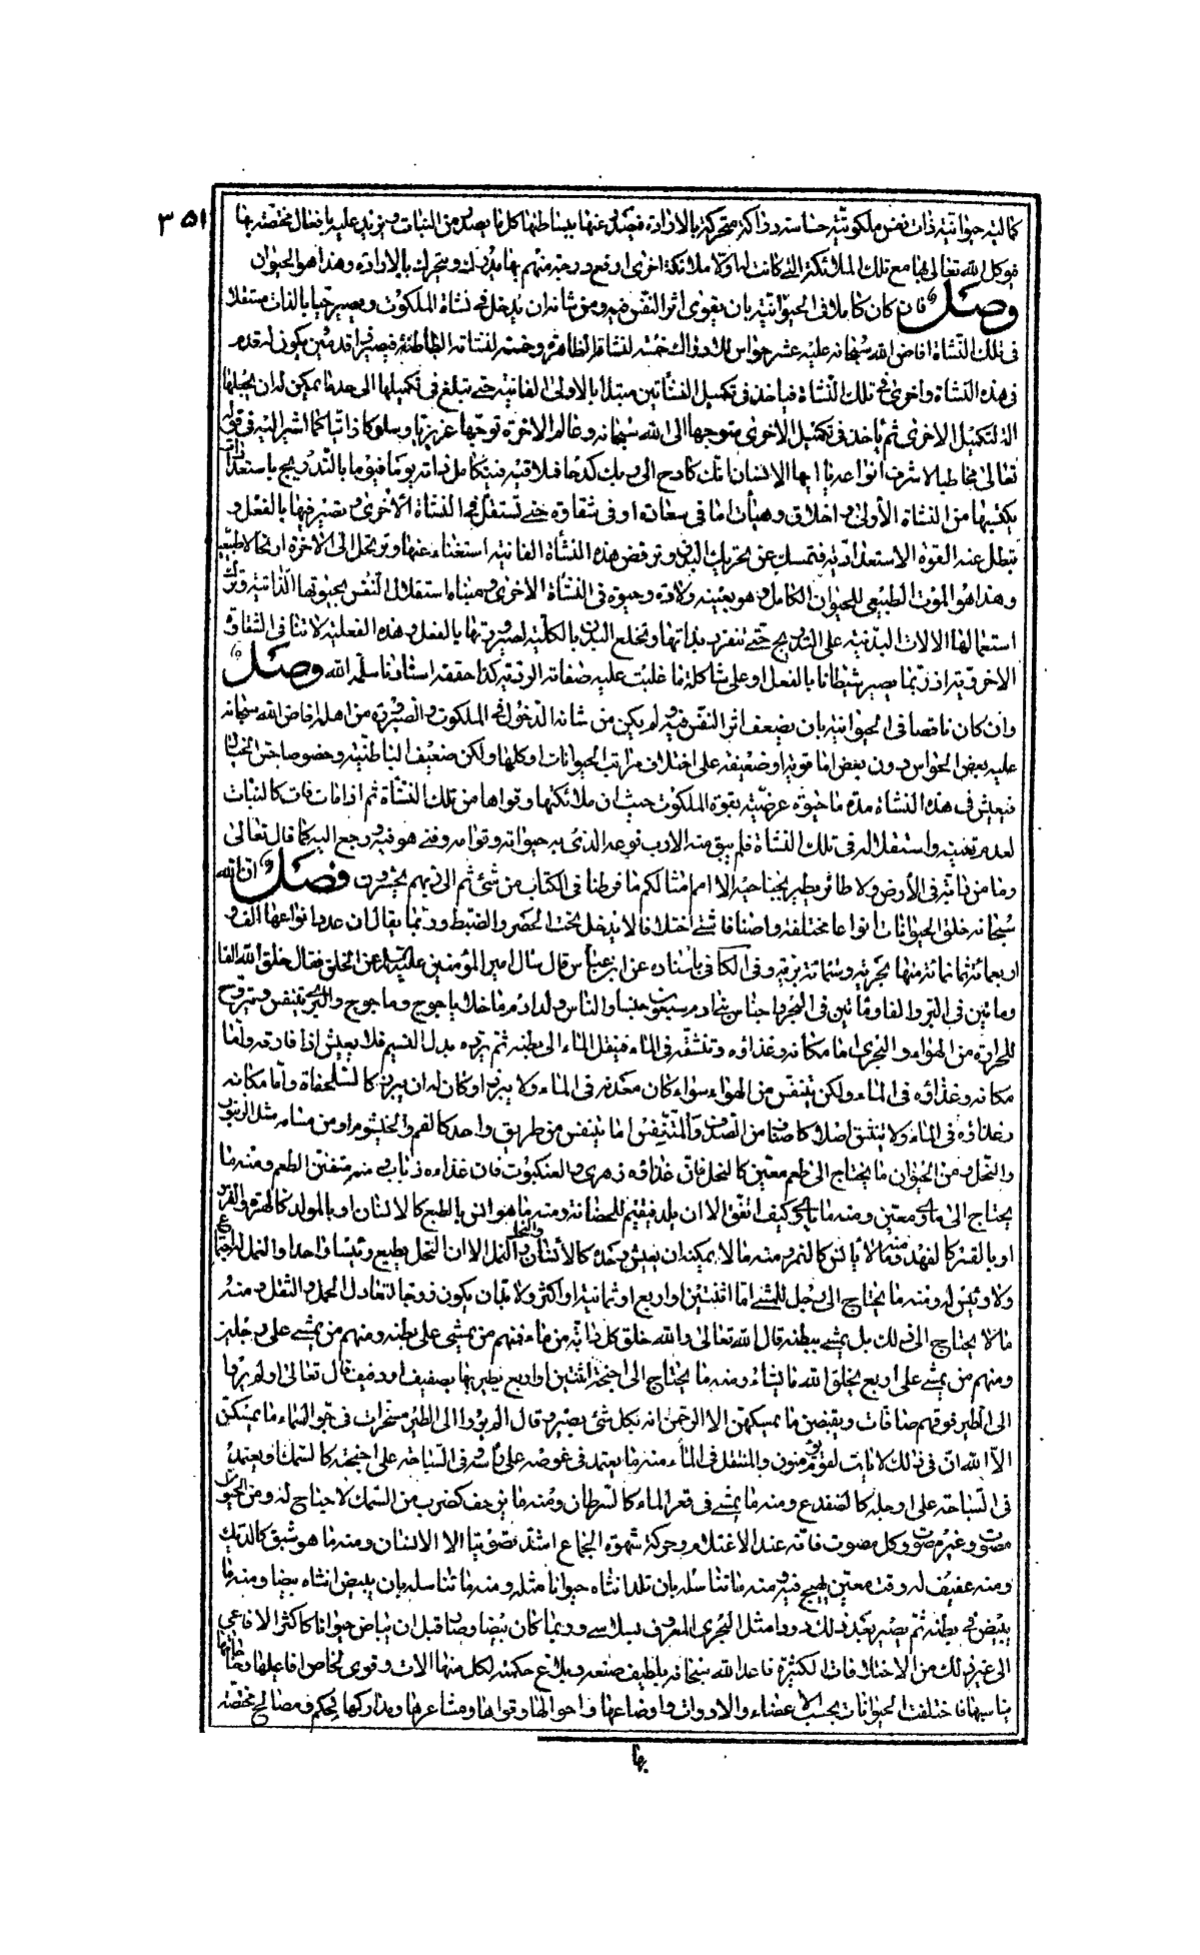 ٣٥١
كمالية حيوانية ذات نفس ملكوتية حساسة دراكة متحركة بالارادة فيصدر عنها ببساطتها كل ما يصدر من النبات ويزيد عليه بافعال مختصة بها
فيوكل الله تعالى لها مع تلك الملائكة التي كانت لها اولا ملائكة اخرى ارفع درجة منهم بها يدرك ويتحرك بالارادة وهذا هو الحيوان
وصل فان كان كاملا في الحيوانية بان يقوى اثر النفس فيه ومن شانه ان يدخل في نشاة الملكوت ويصير حيا بالذات مستقلا
في تلك النشاة افاض الله سبحانه عليه عشر حواس للادراك خمسة لنشاته الظاهرة وخمسة لنشاته الباطنة فيصير ذا قدمين يكون له قدم
في هذه النشاة واخرى في تلك النشاة فياخذ في تكميل النشأتين مبتدا بالاولى الفانية حتى تبلغ في تكميلها الى حد ما يمكن له ان يجعلها
الة لتكميل الاخرى ثم يأخذ في تكميل الاخرى متوجها الى الله سبحانه وعالم الاخرة توجها غريزيا وسلوكا ذاتيا كما اشير اليه في قوله
تعالى مخاطبا لاشرف انواعه يا ايها الانسان انك كادح الى ربك كدحا فملاقيه فيتكامل ذاته يوما فيوما بالتدريج باستعدادات
يكتسبها من النشاة الأولى واخلاق وهيأت اما في سعادة او في شقاوة حتى تستقل في النشاة الأخرى وتصير فيها بالفعل و
تبطل عنه القوة الاستعدادية فتمسك عن تحريك البدن وترفض هذه النشأة الفانية استغناء عنها وترتحل الى الاخرة ارتحالا طبيعيا
وهذا هو الموت الطبيعي للحيوان الكامل وهو بعينه ولادة وحيوة في النشاة الاخرى ومبناه استقلال النفس بحيوتها الذاتية وترك
استعمالها الالات البدنية على التدريج حتى تنفرد بذاتها وتخلع البدن بالكلية لصيرورتها بالفعل وهذه الفعلية لا تنافي الشقاوة
الاخروية اذ ربما يصير شيطانا بالفعل او على شاكلة ما غلبت عليه صفاته الردية كذا حققه استادنا سلمه الله وصل
وان كان ناقصا في الحيوانية بان يضعف اثر النفس فيه ولم يكن من شانه الدخول في الملكوت والصيرورة من اهلها افاض الله سبحانه
عليه بعض الحواس دون بعض اما قوية او ضعيفة على اختلاف مراتب الحيوانات او كلها ولكن ضعيف الباطنية وخصوصا حس الخيال
فيعيش في هذه النشاة مدة ما حيوة عرضية بقوة الملكوت حيث ان ملائكتها وقواها من تلك النشأة ثم اذا مات فات كالنبات
لعدم تعينه واستقلاله في تلك النشاة فلم يبق منه الا رب نوعه الذي به حيواته وقوامه وفنى هو فيه ورجع اليه كما قال تعالى
وما من دابة في الأرض ولا طائر يطير بجناحيه الا امم امثالكم ما فرطنا في الكتاب من شئ ثم الى ربهم يحشرون فصل ان الله
سبحانه خلق الحيوانات انواعا مختلفة واصنافا شتى اختلافا لا يدخل تحت الحصر والضبط وربما يقال ان عدد انواعها الف و
اربعمائة ثمانمائة منها بحرية وستمائة برية وفي الكافي باسناده عن ابن عباس قال سئل امير المؤمنين عليه السلام عن الخلق فقال خلق الله الفا
ومأتين في البر والفا ومأتين في البحر واجناس بني ادم سبعون جنسا والناس ولد ادم ما خلا ياجوج وماجوج والبري يتنفس ويتروح
للحرارة من الهواء والبحري اما مكانه وغذاؤه وتنشقه في الماء فينقل الماء الى بطنه ثم يرده بدل النسيم فلا يعيش اذا فارقه واما
مكانه وغذاؤه في الماء ولكن يتنفس من الهواء سواء كان معدنه في الماء ولا يبرز او كان له ان يبرز كالسلحفاة واما مكانه
وغذاؤه في الماء ولا يتنشق اصلا كاصناف من الصدف والمتنفس اما يتنفس من طريق واحد كالفم والخيشوم او من مسامه مثل الزنبور
والنحل ومن الحيوان ما يحتاج الى طعم معين كالنحل فان غذاؤه زهرى والعنكبوت فان غذاءه ذباب ومنه متفنن الطعم ومنه ما
يحتاج الى ماوى معين ومنه ما ياوى كيف اتفق الا ان يلد فيقيم للحضانة ومنه ما هو انس بالطبع كالانسان او بالمولد كالهرة والفرس
او بالقسر كالفهد ومنه ما لا يأنس كالنمر ومنه ما لا يمكنه ان يعيش وحده كالأنسان والنحل والنمل الا ان النحل يطيع رئيسا واحدا والنمل له اجتماع
ولا رئيس له ومنه ما يحتاج الى رجل للمشي اما اثنتين او اربع او ثمانية او اكثر ولا بد ان يكون زوجا لتعادل الحمل والثقل ومنه
ما لا يحتاج الى ذلك بل يمشي ببطنه قال الله تعالى والله خلق كل دابة من ماء فمنهم من يمشى على بطنه ومنهم من يمشي على رجلين
ومنهم من يمشي على اربع يخلق الله ما يشاء ومنه ما يحتاج الى اجنحة اثنتين او اربع يطير بها بصفيف او دفيف قال تعالى اولم يروا
الى الطير فوقهم صافات ويقبضن ما يمسكهن الا الرحمن انه بكل شئ بصير وقال الم يروا الى الطير مسخرات في جو السماء ما يمسكهن
الا الله ان في ذلك لايات لقوم يؤمنون والمتنقل في الماء منه ما يعتمد في غوصه على راسه وفي السباحة على اجنحته كالسمك او يعتمد
في السباحة على ارجله كالضفدع ومنه ما يمشي في قعر الماء كالسرطان ومنه ما يزحف كضرب من السمك لا جناح له ومن الحيوان
مصوت وغير مصوت وكل مصوت فانه عند الاغتلام وحركة شهوة الجماع اشد تصويتا الا الانسان ومنه ما هو شبق كالديك
ومنه عفيف له وقت معين يهيج فيه ومنه ما تناسله بان تلد انثاه حيوانا مثله ومنه ما تناسله بان يبيض انثاه بيضا ومنه ما
يبيض في بطنه ثم يصير بعد ذلك دودا مثل البحري المعروف بسلاسى وربما كان بيضا وصار قبل ان يباض حيوانا كاكثر الافاعي
الى غير ذلك من الاختلافات الكثيرة فاعد الله سبحانه بلطيف صنعه وبدايع حكمته لكل منها الات وقوى لخواص افاعيلها وما
يناسبها فاختلفت الحيوانات بحسب الاعضاء والادوات واوضاعها واحوالها وقواها ومشاعرها ومداركها لحكم ومصالح مختصة
بها